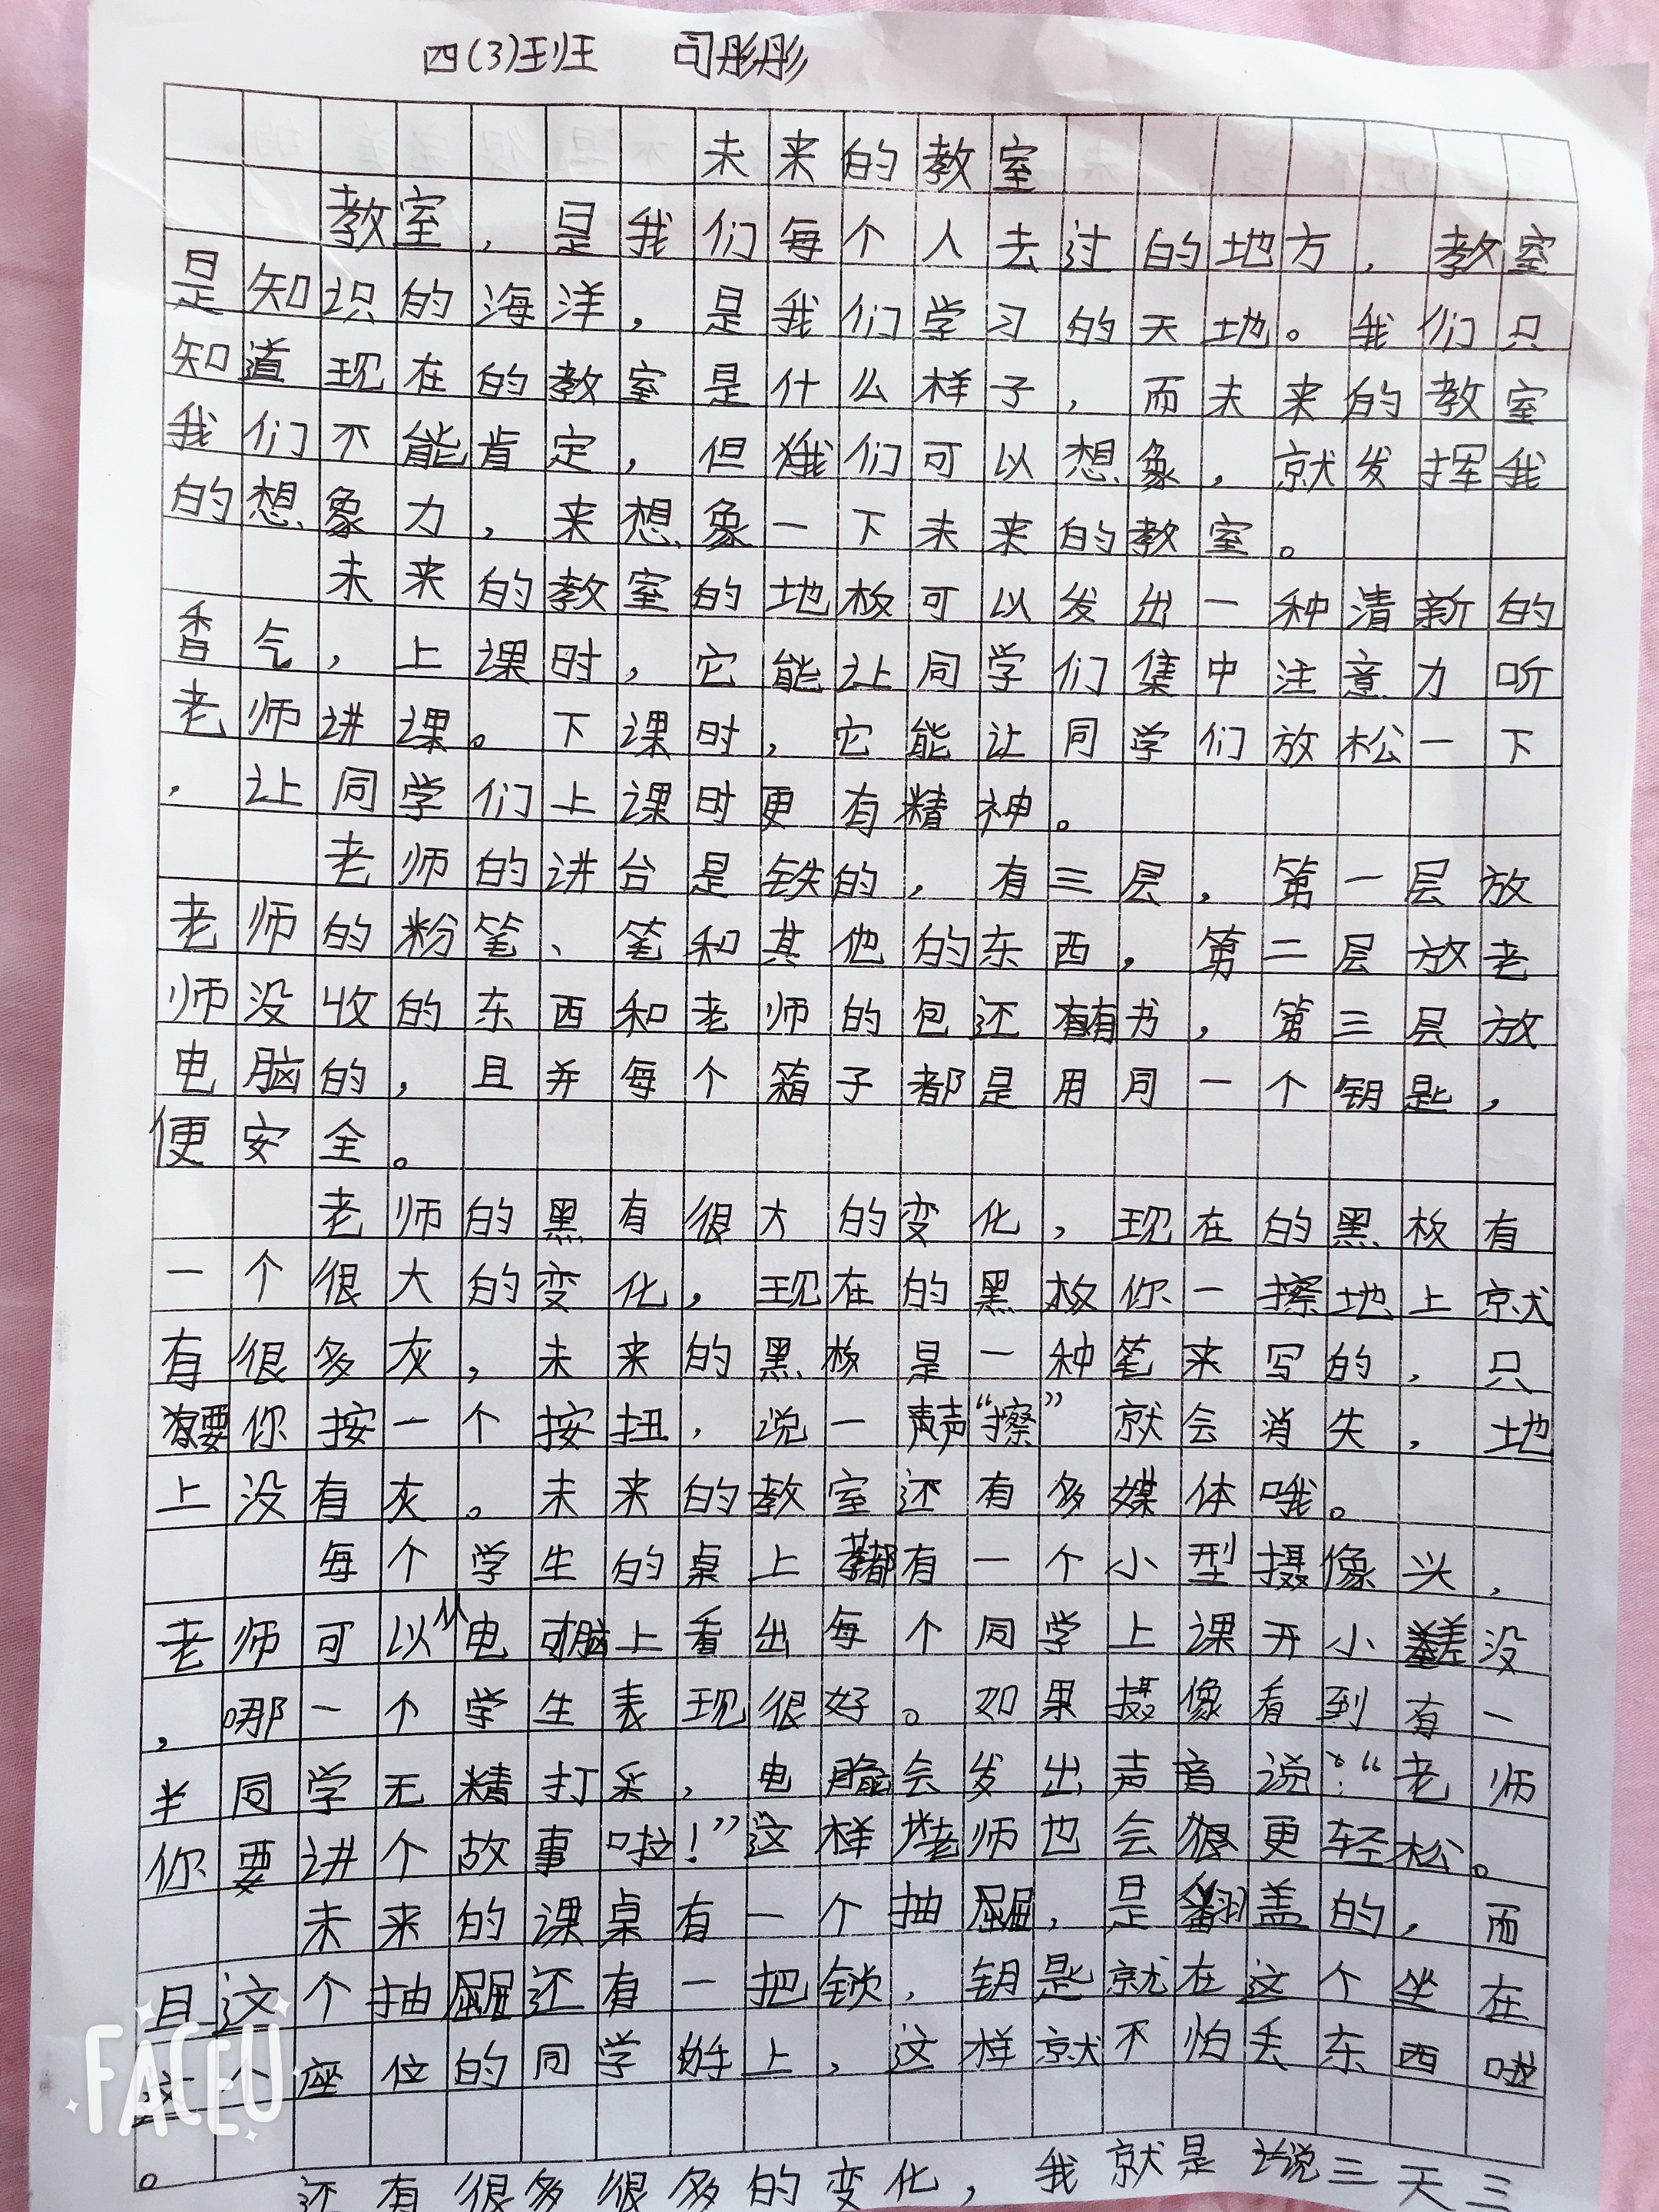 四(3)班 司彤彤
未来的教室
教室，是我们每个人去过的地方，教室
是知识的海洋，是我们学习的天地。我们只
知道现在的教室是什么样子，而未来的教室
我们不能肯定，但我们可以想象，就发挥我
的想象力，来想象一下未来的教室。
未来的教室的地板可以发出一种清新的
香气，上课时，它能让同学们集中注意力听
老师讲课。下课时，它能让同学们放松一下
，让同学们上课时更有精神。
老师的讲台是铁的，有三层，第一层放
老师的粉笔、笔和其他的东西，第二层放老
师没收的东西和老师的包还有书，第三层放
电脑的，且并每个箱子都是用同一个钥匙，
便安全。
老师的黑有很大的变化，现在的黑板有
一个很大的变化，现在的黑板你一擦地上就
有很多灰，未来的黑板是一种笔来写的，只
要你按一个按扭，说一声“擦”就会消失，地
上没有灰。未来的教室还有多媒体哦。
每个学生的桌上都有一个小型摄像头，
老师可以从电脑上看出每个同学上课开小差没
，哪一个学生表现很好。如果摄像看到有一
半同学无精打采，电脑会发出声音说：“老师
你要讲个故事啦！”这样老师也会很更轻松。
未来的课桌有一个抽屉，是翻盖的，而
且这个抽屉还有一把锁，钥匙就在这个坐在
这个座位的同学手上，这样就不怕丢东西啦
。
还有很多很多的变化，我就是说三天三
FACEU